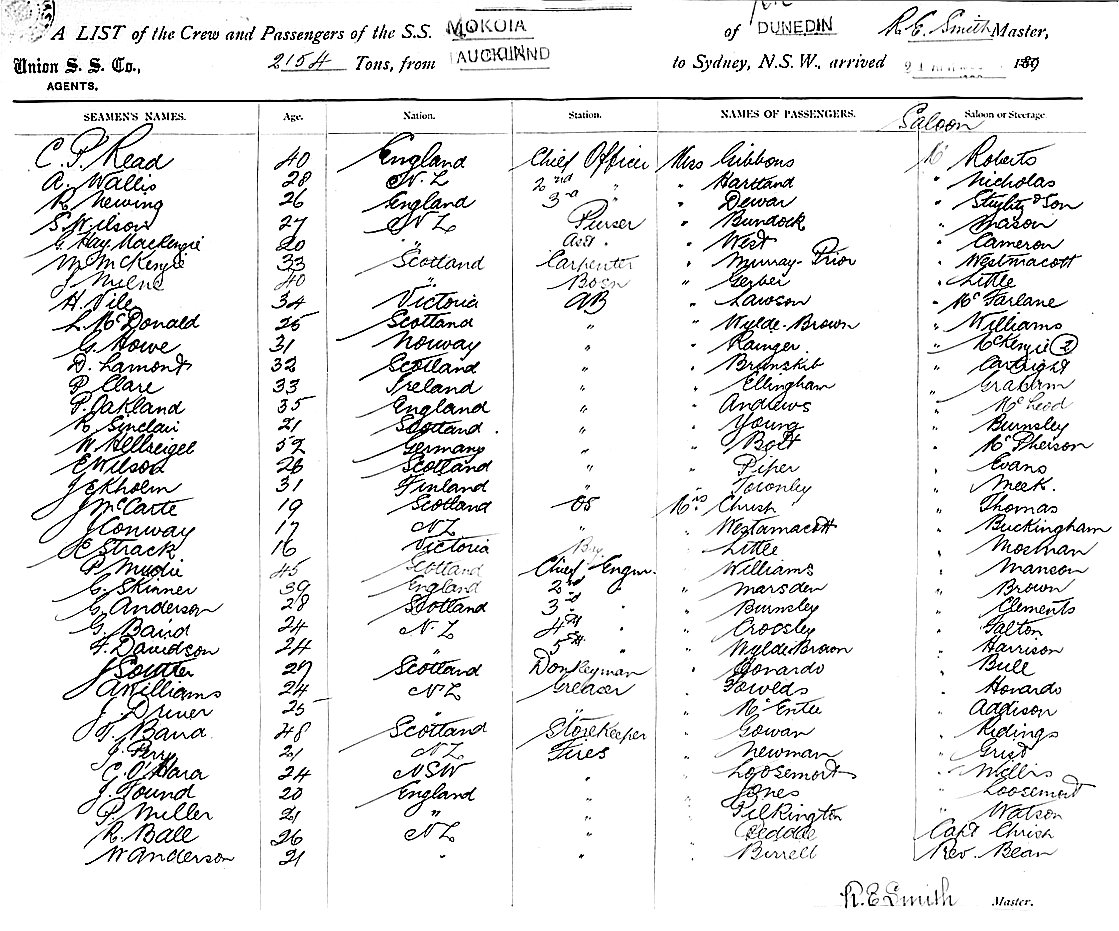 A LIST of the Crew and Passengers of the S.S. MOKOIA of DUNEDIN R. E. Smith Master,
Union S. S. Co., 2154 Tons, from AUCKLAND to Sydney, N.S.W., arrived 189
AGENTS.
SEAMEN'S NAMES. Age. Nation. Station. NAMES OF PASSENGERS. Saloon Saloon or Steerage.
C. P. Read 40 England Chief Officer Miss Gibbons Mr Roberts
A. Wallis 28 N.Z 2nd " " Hartland " Nicholas
R. Newing 26 England 3rd " " Dewar " & Son
S. Wilson 27 NZ Purser " Bundock " Mason
G Hay MacKenzie 20 " Asst " " West " Cameron
M McKenzie 33 Scotland Carpenter " Murray-Prior " Westmacott
J Milne 40 " Bosn " Gerber " Little
H. Vile 34 Victoria AB " Lawson " McFarlane
L. McDonald 25 Scotland " " Wylde-Brown " Williams
G. Howe 31 Norway " " Rainger " McKenzie (2)
D. Lamont 32 Scotland " " Brunskib " Cartright
P. Clare 33 Ireland " " Ellingham " Graham
P. Oakland 35 England " " Andrews " McLeod
R. Sinclair 21 Scotland " " Young " Burnsley
W. Hellseigel 52 Germany " " Bolt " McPherson
E Wilson 26 Scotland " " Piper " Evans
J Ekholm 31 Finland " " Townley " Meek.
J McCarte 19 Scotland OS Mrs Christ " Thomas
J Conway 17 NZ " " Westamacott " Buckingham
Strack 16 Victoria Boy " Little " Mosman
P. Mudie 45 Scotland Chief Engnr. " Williams " Manson
C. Skinner 39 England 2nd " " Marsden " Brown
G. Anderson 28 Scotland 3rd " " Burnsley " Clements
G. Baird 24 N.Z 4th " " Crossley " Galton
F. Davidson 24 " 5th " " Wylde Brown " Harrison
J Soutter 27 Scotland Donkeyman " Howardo " Bull
A Williams 24 NZ Greaser " Fowlds " Howardo
J. Driver 25 " " " McEntee " Addison
T. Band 48 Scotland Storekeeper " Gowan " Ridings
J. Pery 21 NZ Fires " Newman " Grist
C. O'Hara 24 NSW " " Loosemort " Willis
J. Pound 20 England " " Jones " Loosemort
P. Miller 21 " " " Pilkington " Watson
R. Ball 26 NZ " " Capt Christ
W Anderson 21 " " " Birrell Rev. Bean
R. E Smith Master.